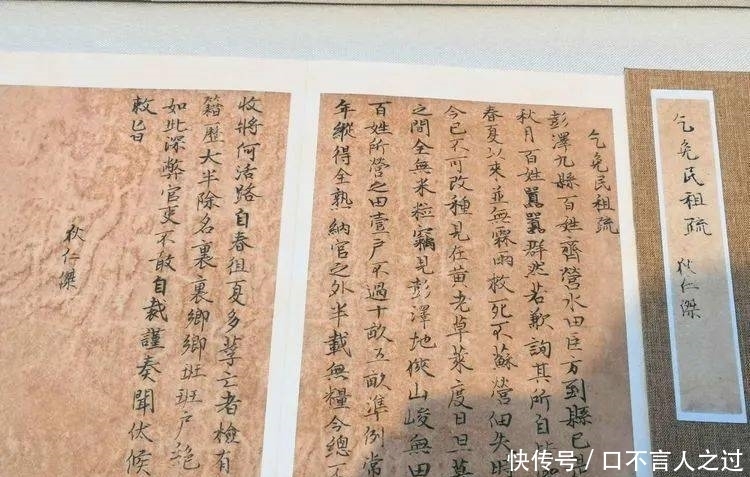 乞免民租疏 狄仁傑
乞免民租疏
彭澤九縣百姓齊營水田臣方到縣已是
秋月百姓囂囂群然若歉詢其所自皆
春夏以來並無霖雨救死不蘇營佃失時
今已不可改種見在黃老草萊度日旦暮
之間全無米粒竊見彭澤地狹山峻無田
百姓所營之田壹戶不過十畝五畝準例常
年縱得全熟納官之外半載無糧今總不
收將何活路自春徂夏多莩亡者檢有
籍歷大半除名裏裏鄉鄉班班戶絕
如此深弊官吏不敢自裁謹奏聞伏候
敕旨
狄仁傑
快传号/口不言人之过